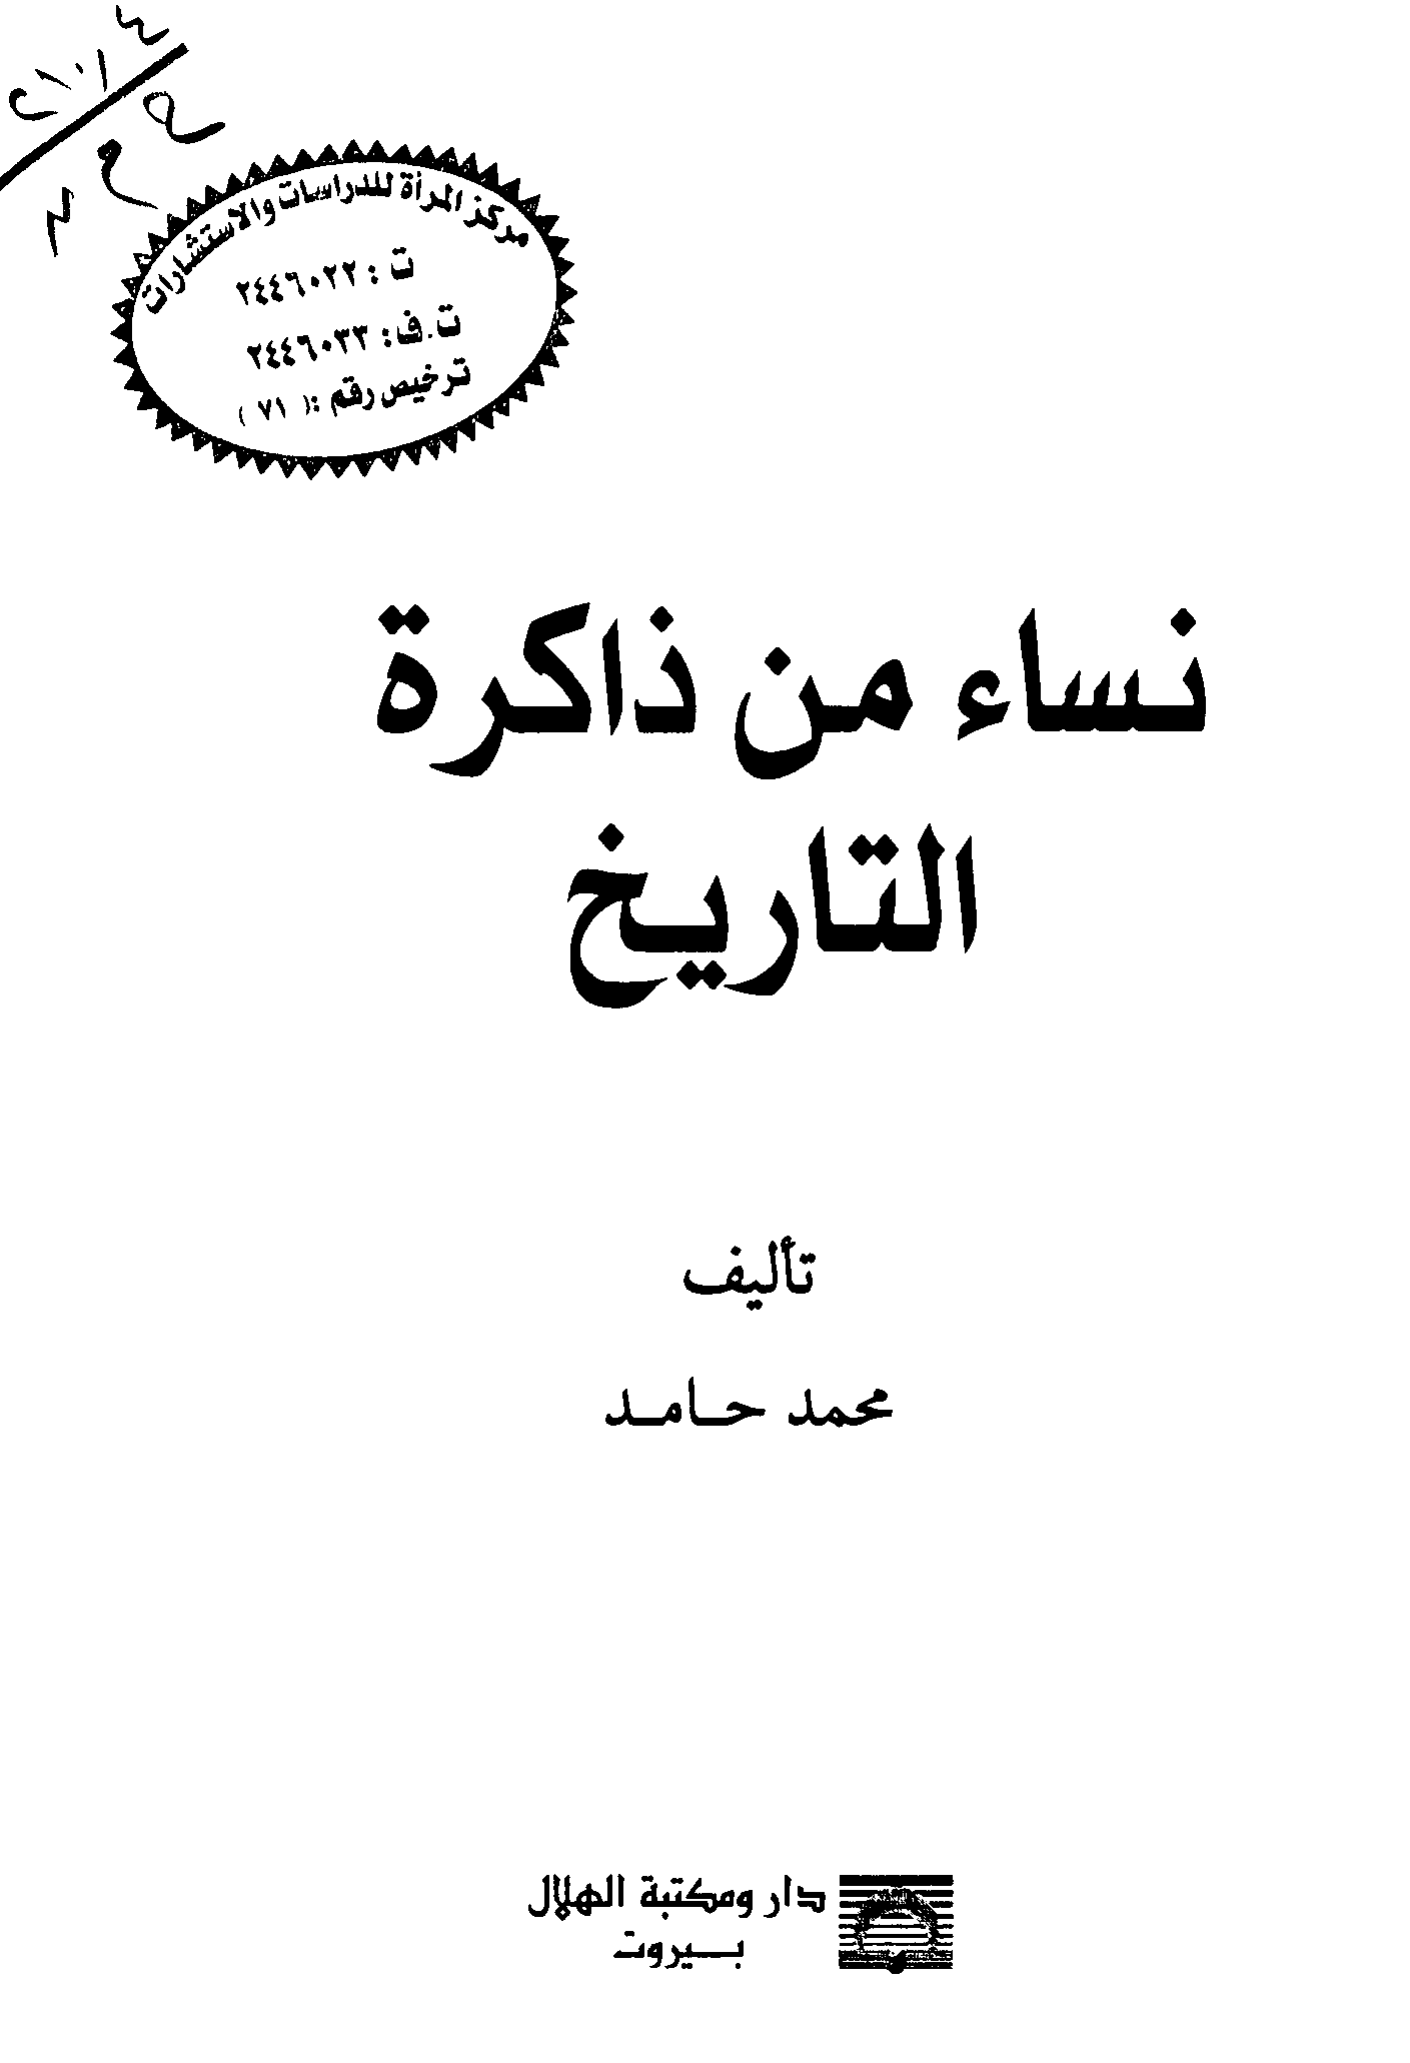 مركز المرأة للدراسات والاستشارات
ت : ٢٤٤٦٠٢٢
ت.ف: ٢٤٤٦٠٣٣
ترخيص رقم :( ٧١ )
نساء من ذاكرة
التاريخ
تأليف
محمد حامد
دار ومكتبة الهلال
بيروت